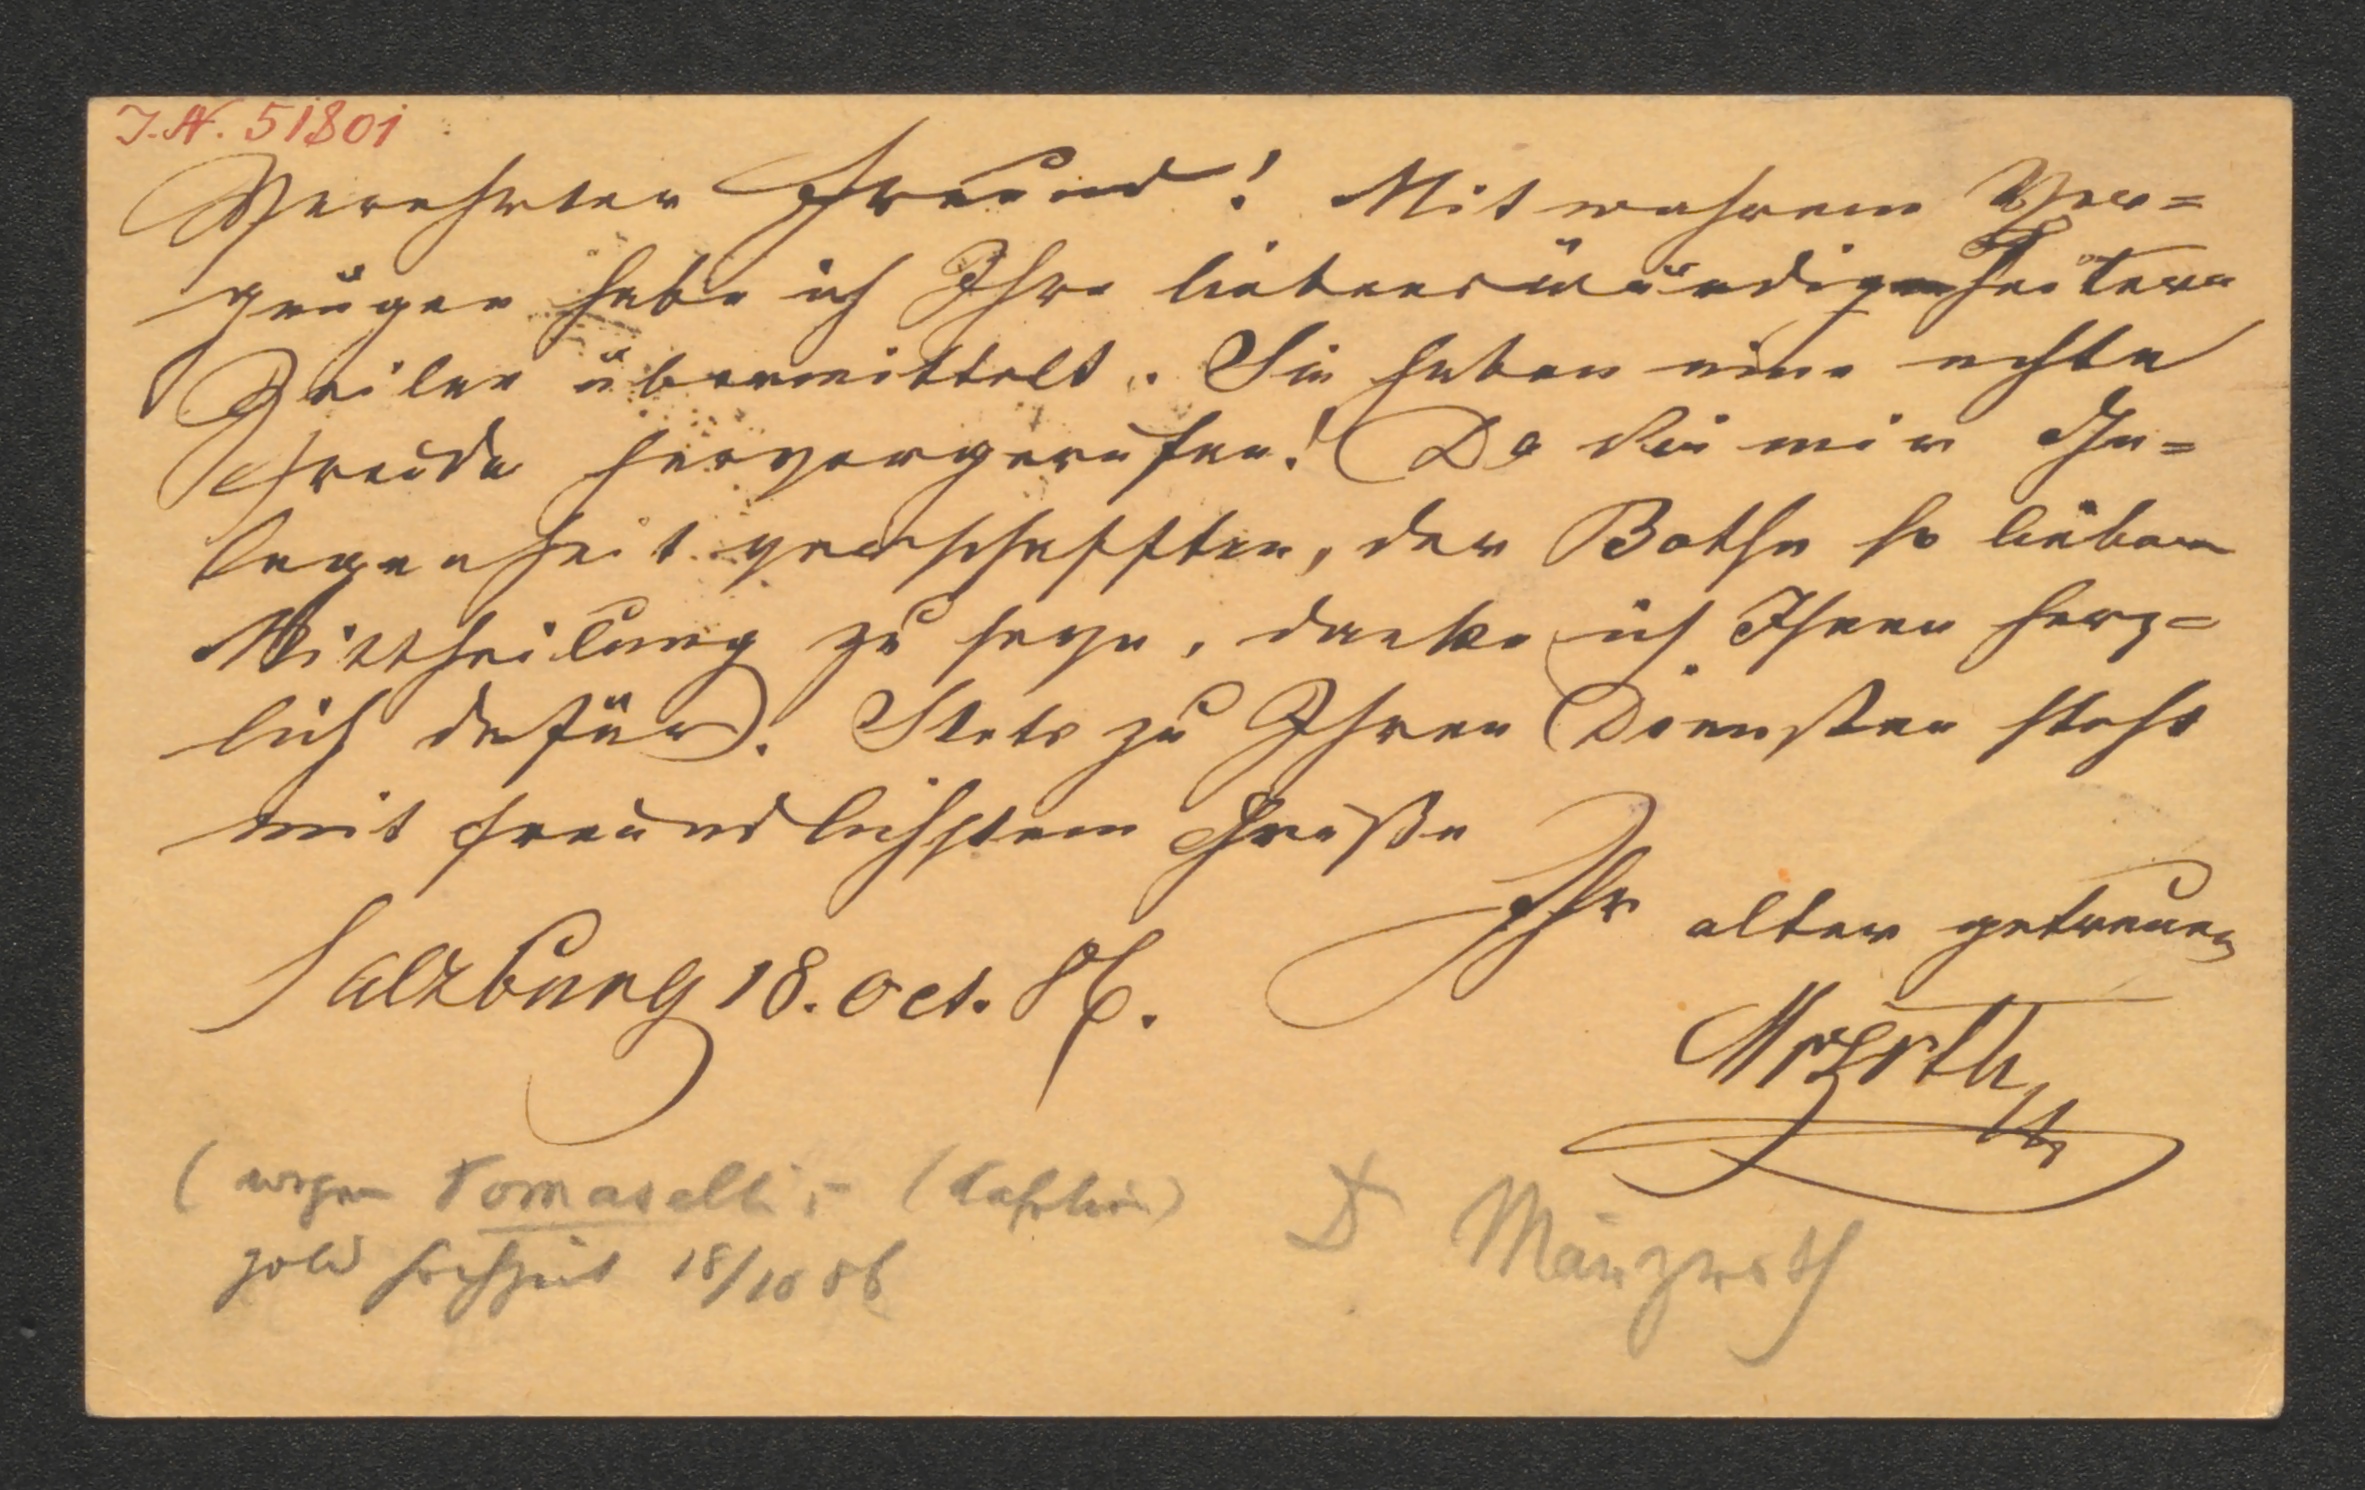 I.N. 51801
Verehrter Freund! Mit wahrem Ver=
gnügen habe ich Ihre liebenswürdigen heitern
Zeilen übermittelt. Sie haben eine echte
Freude hervorgerufen! Da Sie mir Ge=
legenheit verschafften, der Bothe so lieber
Mittheilung zu seyn, danke ich Ihnen herz=
lich dafür. Stets zu Ihren Diensten steht
mit freundlichstem Gruße
Ihr alter getreuer
Salzburg 18. Oct. 86.
Mzrth
(wegen Tomaselli,- (Cafetier)
gold Hochzeit 18/10 86
Dr Märzroth